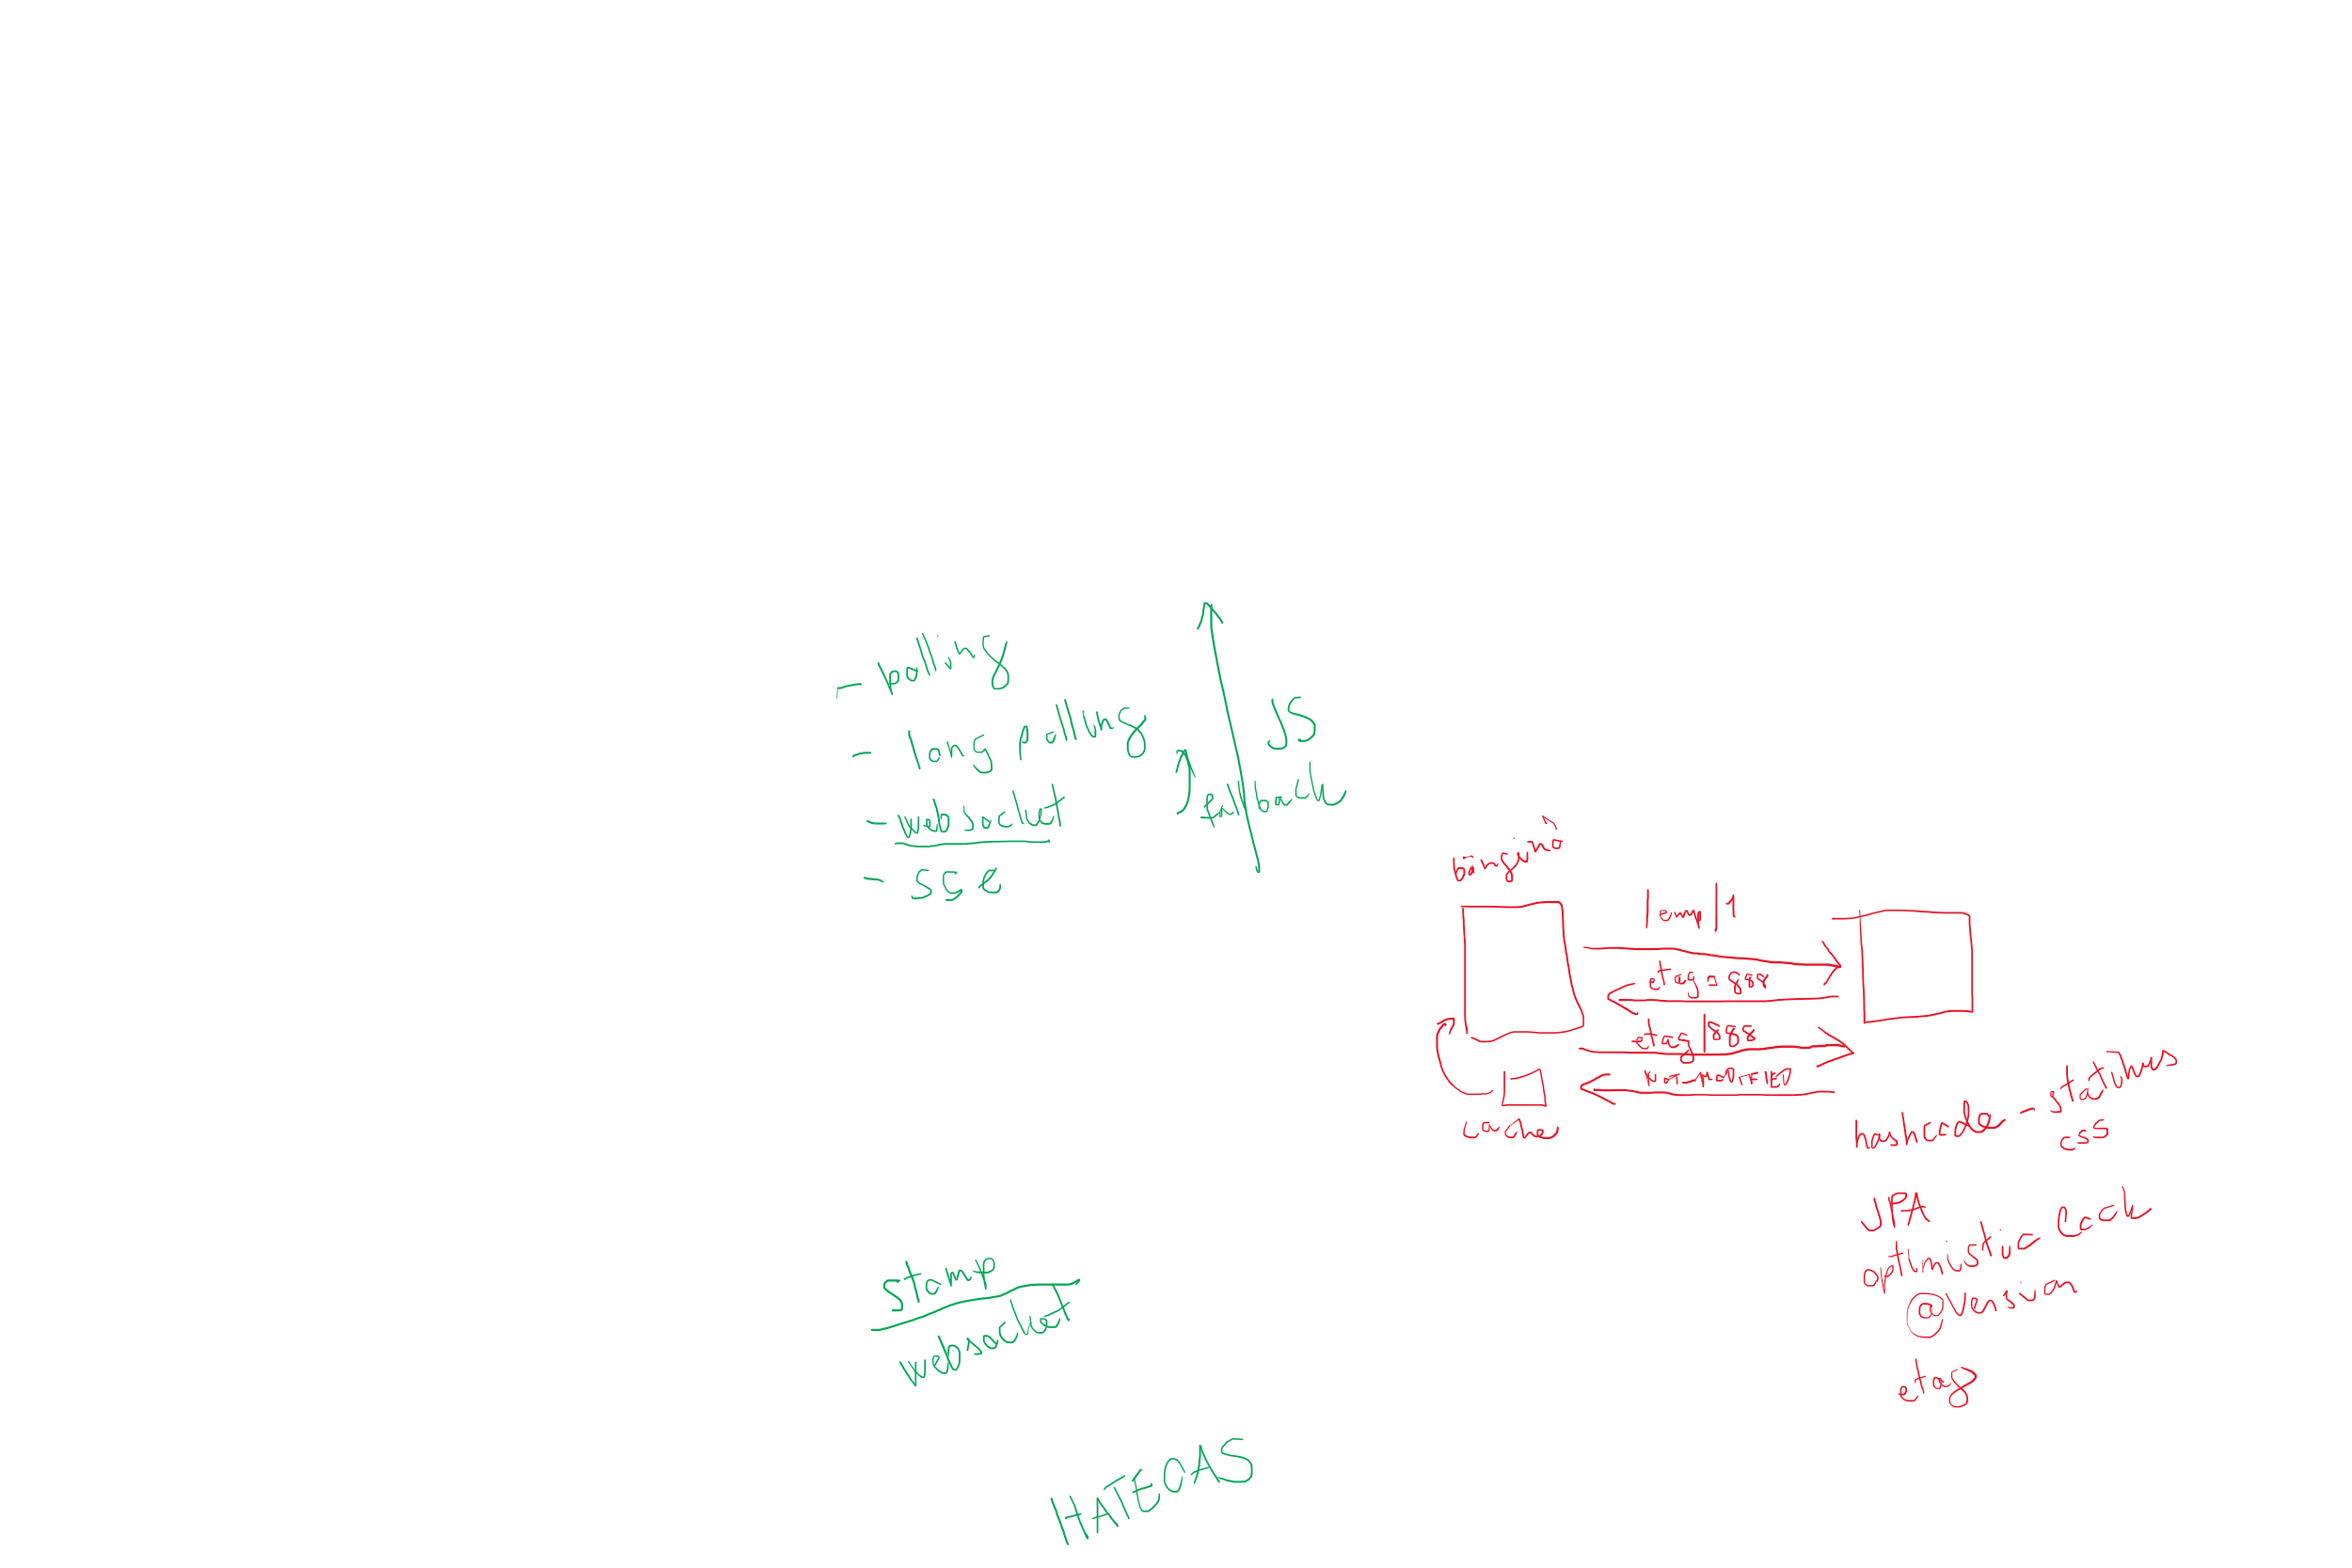 - polling
- long polling
- websocket
- sse
JS
fallback
stomp
websocket
HATEOAS
böngésző
/emp/1
etag=888
etag/888
NOT-MODIFIED
cache
hashcode - statikus
css
JPA
optimistic lock
@Version
etag